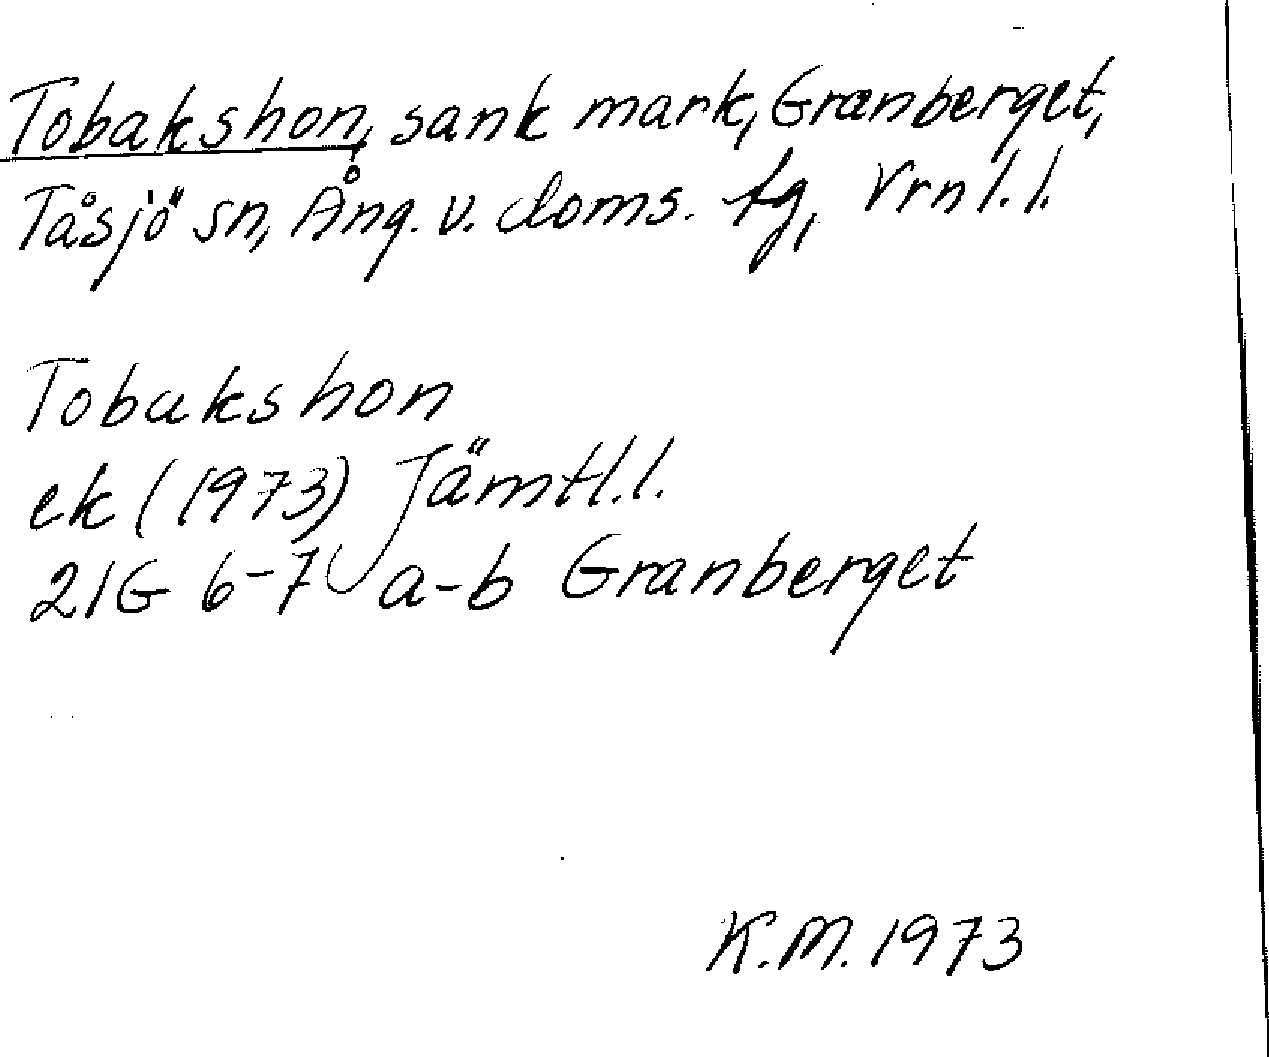 Tobakshon, sank mark, Granberget,
Tåsjö sn, Ång. v. doms. tg, Vrnl.l.
Tobakshon
ek (1973) Jämtl.l.
21G 6-7 a-b Granberget
K.M. 1973